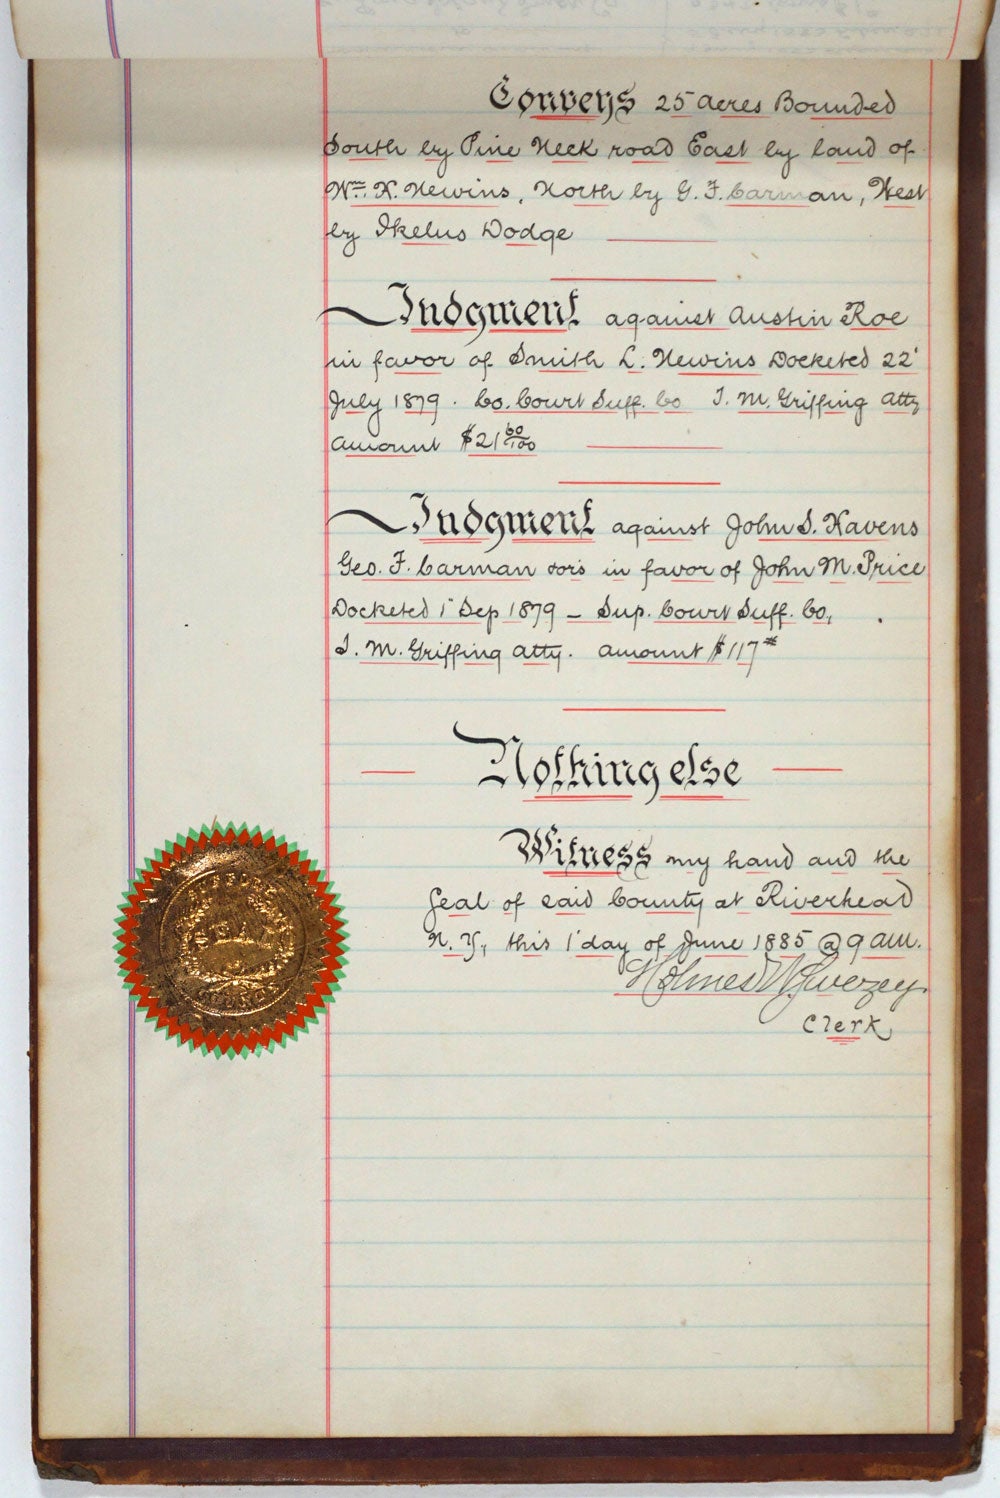 Conveys 25 acres Bounded
South by Pine Neck road East by land of
Wm. H. Newins, North by G. F. Carman, West
by Ikelus Dodge
Judgment against Austin Roe
in favor of Smith L. Newins Docketed 22'
July 1879. Co. Court Suff. Co T. M. Griffing Atty
amount $21 60/100
Judgment against John S. Havens
Geo. F. Carman & ors in favor of John M. Price
Docketed 1' Sep 1879 – Sup. Court Suff. Co,
T. M. Griffing Atty. amount $117
Nothing else
Witness my hand and the
Seal of said County at Riverhead
N. Y, this 1' day of June 1885 @ 9 am.
Holmes W. Swezey
Clerk
SUFFOLK
SEAL
COUNTY